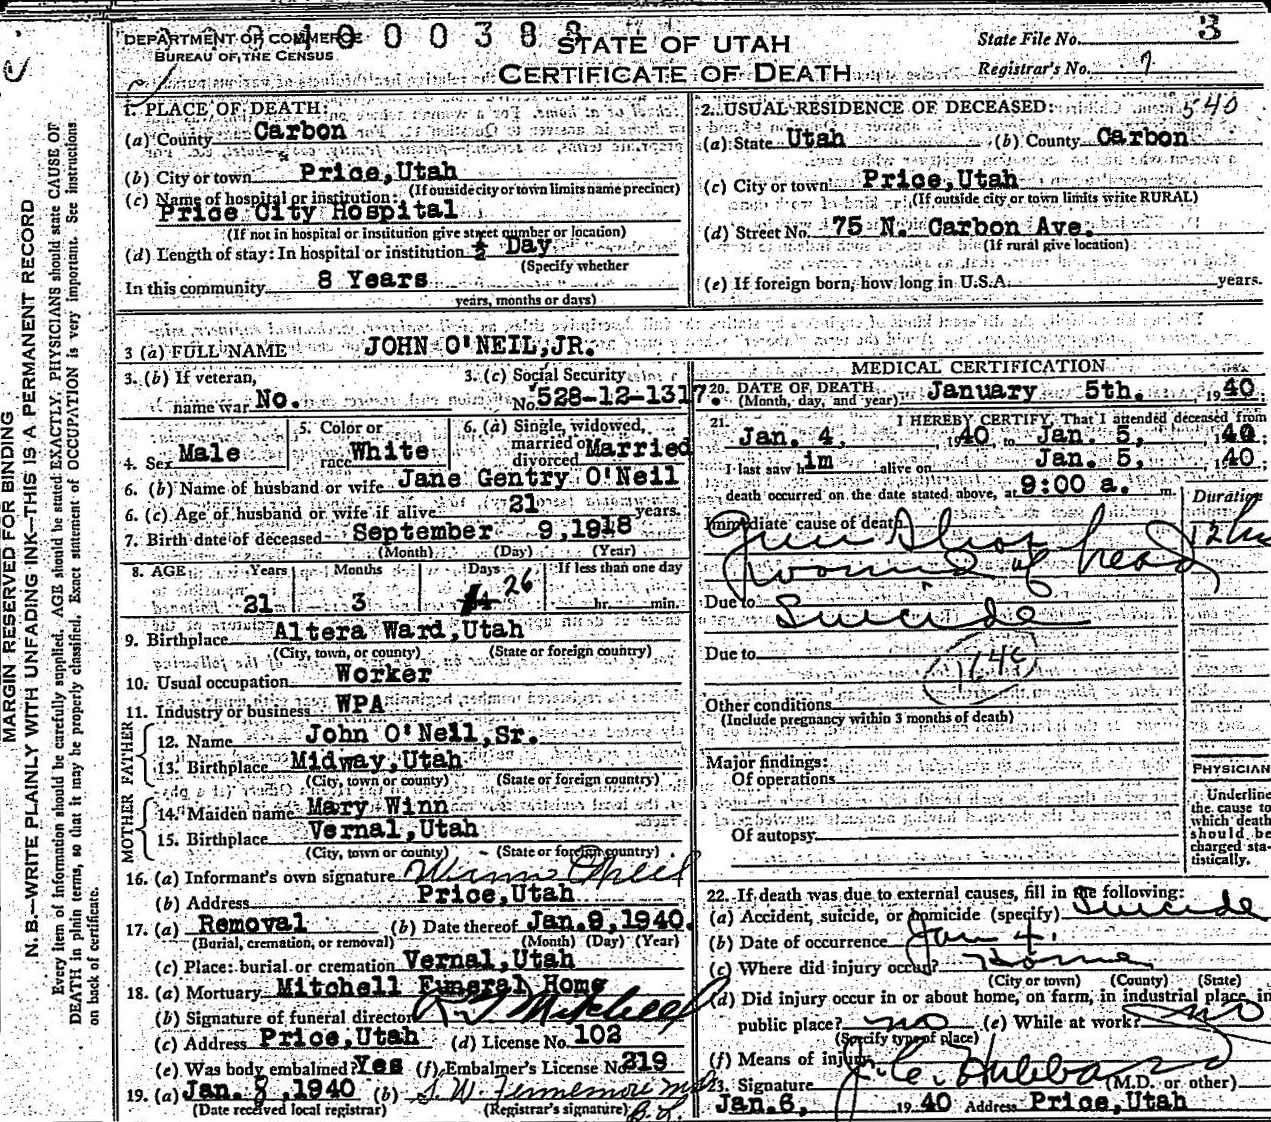 DEPARTMENT OF COMMERCE
BUREAU OF THE CENSUS
STATE OF UTAH
CERTIFICATE OF DEATH
State File No. 3
Registrar's No. 7
MARGIN RESERVED FOR BINDING
N. B.—WRITE PLAINLY WITH UNFADING INK—THIS IS A PERMANENT RECORD
Every item of information should be carefully supplied. AGE should be stated EXACTLY. PHYSICIANS should state CAUSE OF
DEATH in plain terms, so that it may be properly classified. Exact statement of OCCUPATION is very important. See instructions
on back of certificate.
1. PLACE OF DEATH:
(a) County Carbon
(b) City or town Price, Utah
(If outside city or town limits name precinct)
(c) Name of hospital or institution:
Price City Hospital
(If not in hospital or institution give street number or location)
(d) Length of stay: In hospital or institution ½ Day
(Specify whether
In this community 8 Years
years, months or days)
2. USUAL RESIDENCE OF DECEASED: 540
(a) State Utah (b) County Carbon
(c) City or town Price, Utah
(If outside city or town limits write RURAL)
(d) Street No. 75 N. Carbon Ave.
(If rural give location)
(e) If foreign born, how long in U.S.A. years.
3 (a) FULL NAME JOHN O'NEIL, JR.
3. (b) If veteran,
name war No.
3. (c) Social Security
No. 528-12-1317.
4. Sex Male
5. Color or
race White
6. (a) Single, widowed,
married or
divorced Married
6. (b) Name of husband or wife Jane Gentry O'Neil
6. (c) Age of husband or wife if alive 21 years.
7. Birth date of deceased September 9, 1918
(Month) (Day) (Year)
8. AGE Years Months Days If less than one day
21 3 26 hr. min.
9. Birthplace Altera Ward, Utah
(City, town, or county) (State or foreign country)
10. Usual occupation Worker
11. Industry or business WPA
FATHER
12. Name John O'Neil, Sr.
13. Birthplace Midway, Utah
(City, town or county) (State or foreign country)
MOTHER
14. Maiden name Mary Winn
15. Birthplace Vernal, Utah
(City, town or county) (State or foreign country)
16. (a) Informant's own signature
(b) Address Price, Utah
17. (a) Removal (b) Date thereof Jan. 9, 1940.
(Burial, cremation, or removal) (Month) (Day) (Year)
(c) Place: burial or cremation Vernal, Utah
18. (a) Mortuary Mitchell Funeral Home
(b) Signature of funeral director Mitchell
(c) Address Price, Utah (d) License No. 102
(e) Was body embalmed? Yes (f) Embalmer's License No. 219
19. (a) Jan. 8, 1940 (b)
(Date received local registrar) (Registrar's signature)
MEDICAL CERTIFICATION
20. DATE OF DEATH January 5th. , 1940.
(Month, day, and year)
21. I HEREBY CERTIFY, That I attended deceased from
Jan. 4, 1940 to Jan. 5, 1940;
I last saw him alive on Jan. 5, 1940;
death occurred on the date stated above, at 9:00 a. m.
Duration
Immediate cause of death
Gun Shot
wound of head
Due to Suicide
Due to
164c
Other conditions
(Include pregnancy within 3 months of death)
Major findings:
Of operations
Of autopsy
PHYSICIAN
Underline
the cause to
which death
should be
charged sta-
tistically.
22. If death was due to external causes, fill in the following:
(a) Accident, suicide, or homicide (specify) Suicide
(b) Date of occurrence Jan 4.
(c) Where did injury occur? Home
(City or town) (County) (State)
(d) Did injury occur in or about home, on farm, in industrial place, in
public place? no (e) While at work? no
(Specify type of place)
(f) Means of injury
23. Signature J. C. Hubbard (M.D. or other)
Jan. 6, 1940 Address Price, Utah